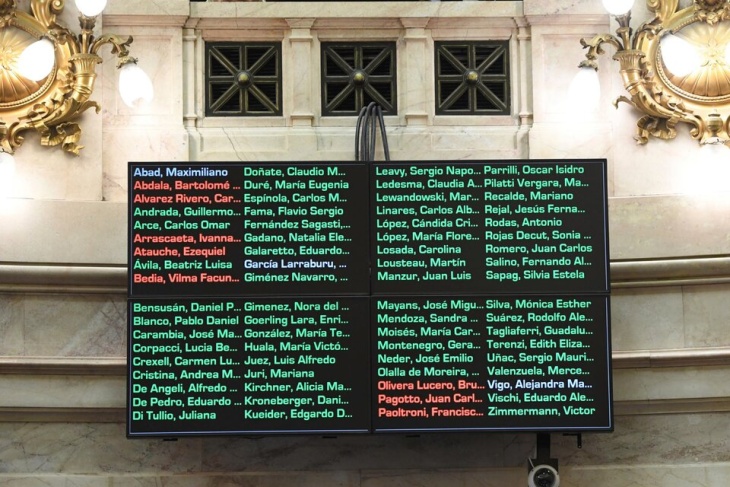 Abad, Maximiliano
Abdala, Bartolomé ...
Alvarez Rivero, Car...
Andrada, Guillermo...
Arce, Carlos Omar
Arrascaeta, Ivanna...
Atauche, Ezequiel
Ávila, Beatriz Luisa
Bedia, Vilma Facun...
Doñate, Claudio M...
Duré, María Eugenia
Espínola, Carlos M...
Fama, Flavio Sergio
Fernández Sagasti,...
Gadano, Natalia Ele...
Galaretto, Eduardo...
García Larraburu, ...
Giménez Navarro, ...
Leavy, Sergio Napo...
Ledesma, Claudia A...
Lewandowski, Mar...
Linares, Carlos Alb...
López, Cándida Cri...
López, María Flore...
Losada, Carolina
Lousteau, Martín
Manzur, Juan Luis
Parrilli, Oscar Isidro
Pilatti Vergara, Ma...
Recalde, Mariano
Rejal, Jesús Ferna...
Rodas, Antonio
Rojas Decut, Sonia ...
Romero, Juan Carlos
Salino, Fernando Al...
Sapag, Silvia Estela
Bensusán, Daniel P...
Blanco, Pablo Daniel
Carambia, José Ma...
Corpacci, Lucía Be...
Crexell, Carmen Lu...
Cristina, Andrea M...
De Angeli, Alfredo ...
De Pedro, Eduardo ...
Di Tullio, Juliana
Gimenez, Nora del ...
Goerling Lara, Enri...
González, María Te...
Huala, María Victó...
Juez, Luis Alfredo
Juri, Mariana
Kirchner, Alicia Ma...
Kroneberger, Dani...
Kueider, Edgardo D...
Mayans, José Migu...
Mendoza, Sandra ...
Moisés, María Car...
Montenegro, Gera...
Neder, José Emilio
Olalla de Moreira, ...
Olivera Lucero, Bru...
Pagotto, Juan Carl...
Paoltroni, Francisc...
Silva, Mónica Esther
Suárez, Rodolfo Ale...
Tagliaferri, Guadalu...
Terenzi, Edith Eliza...
Uñac, Sergio Mauri...
Valenzuela, Merce...
Vigo, Alejandra Ma...
Vischi, Eduardo Ale...
Zimmermann, Victor